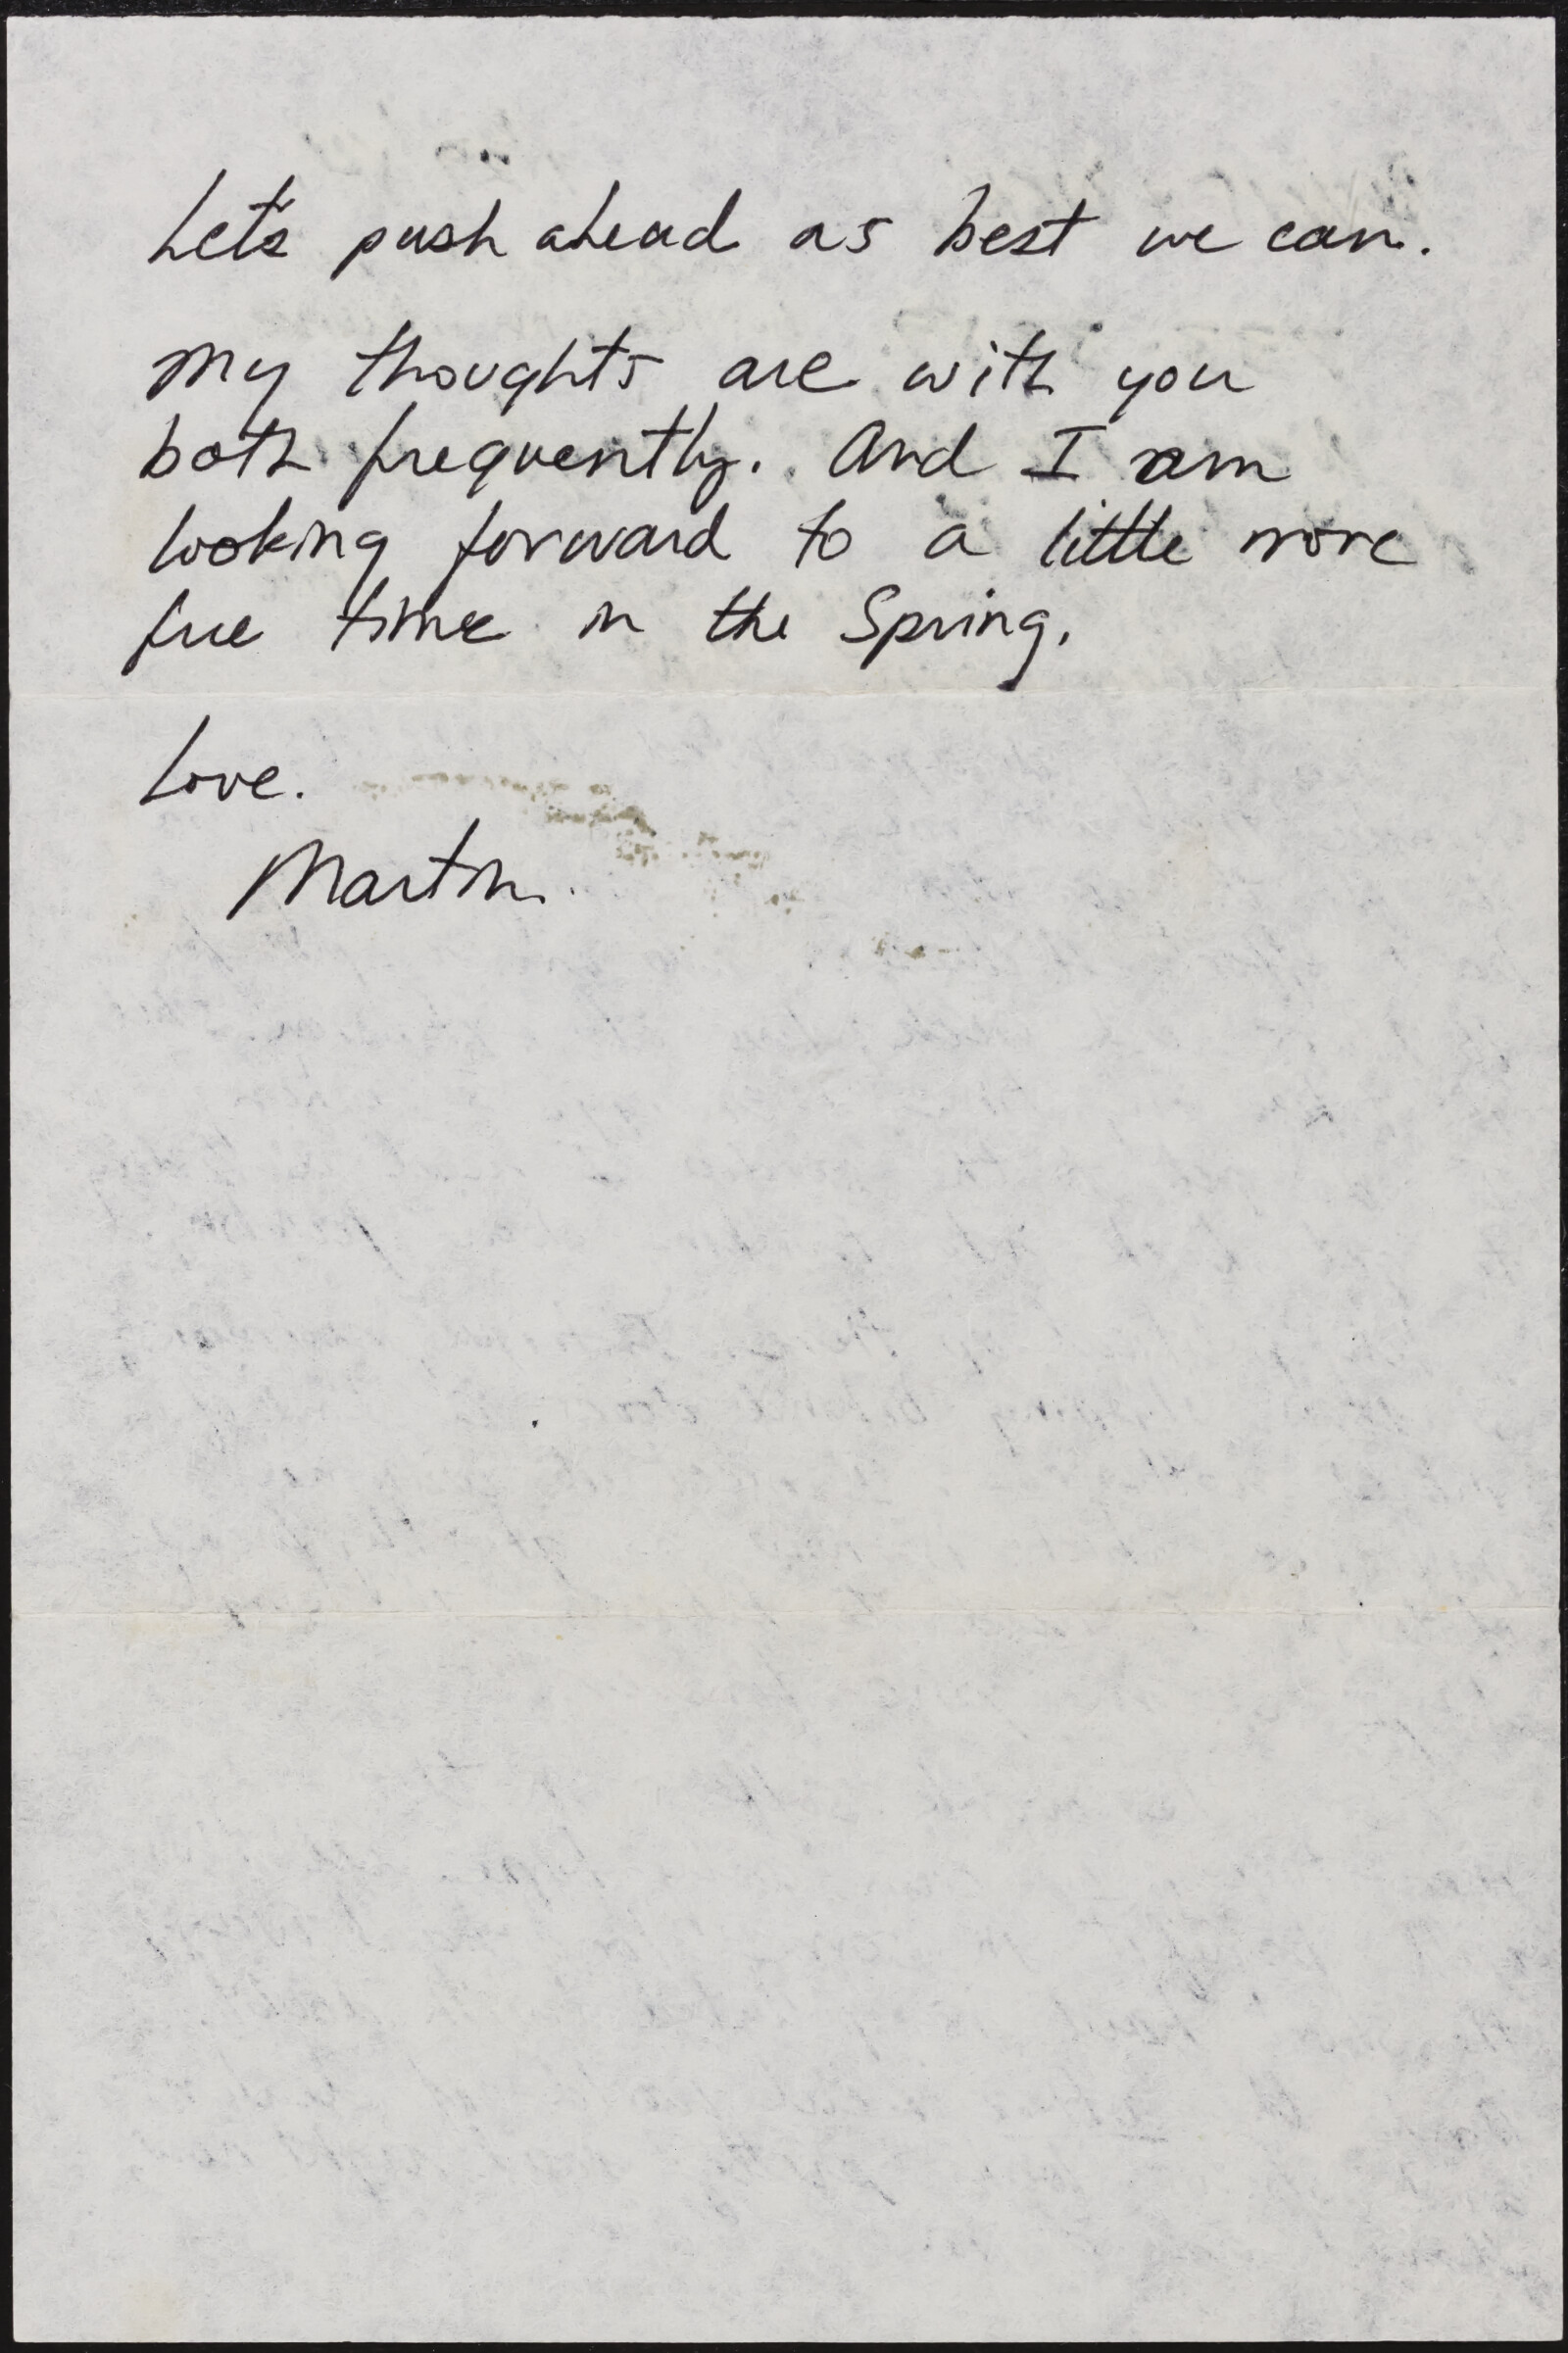 Let's push ahead as best we can.
My thoughts are with you
both frequently. And I am
looking forward to a little more
free time in the Spring.
Love.
Martin.